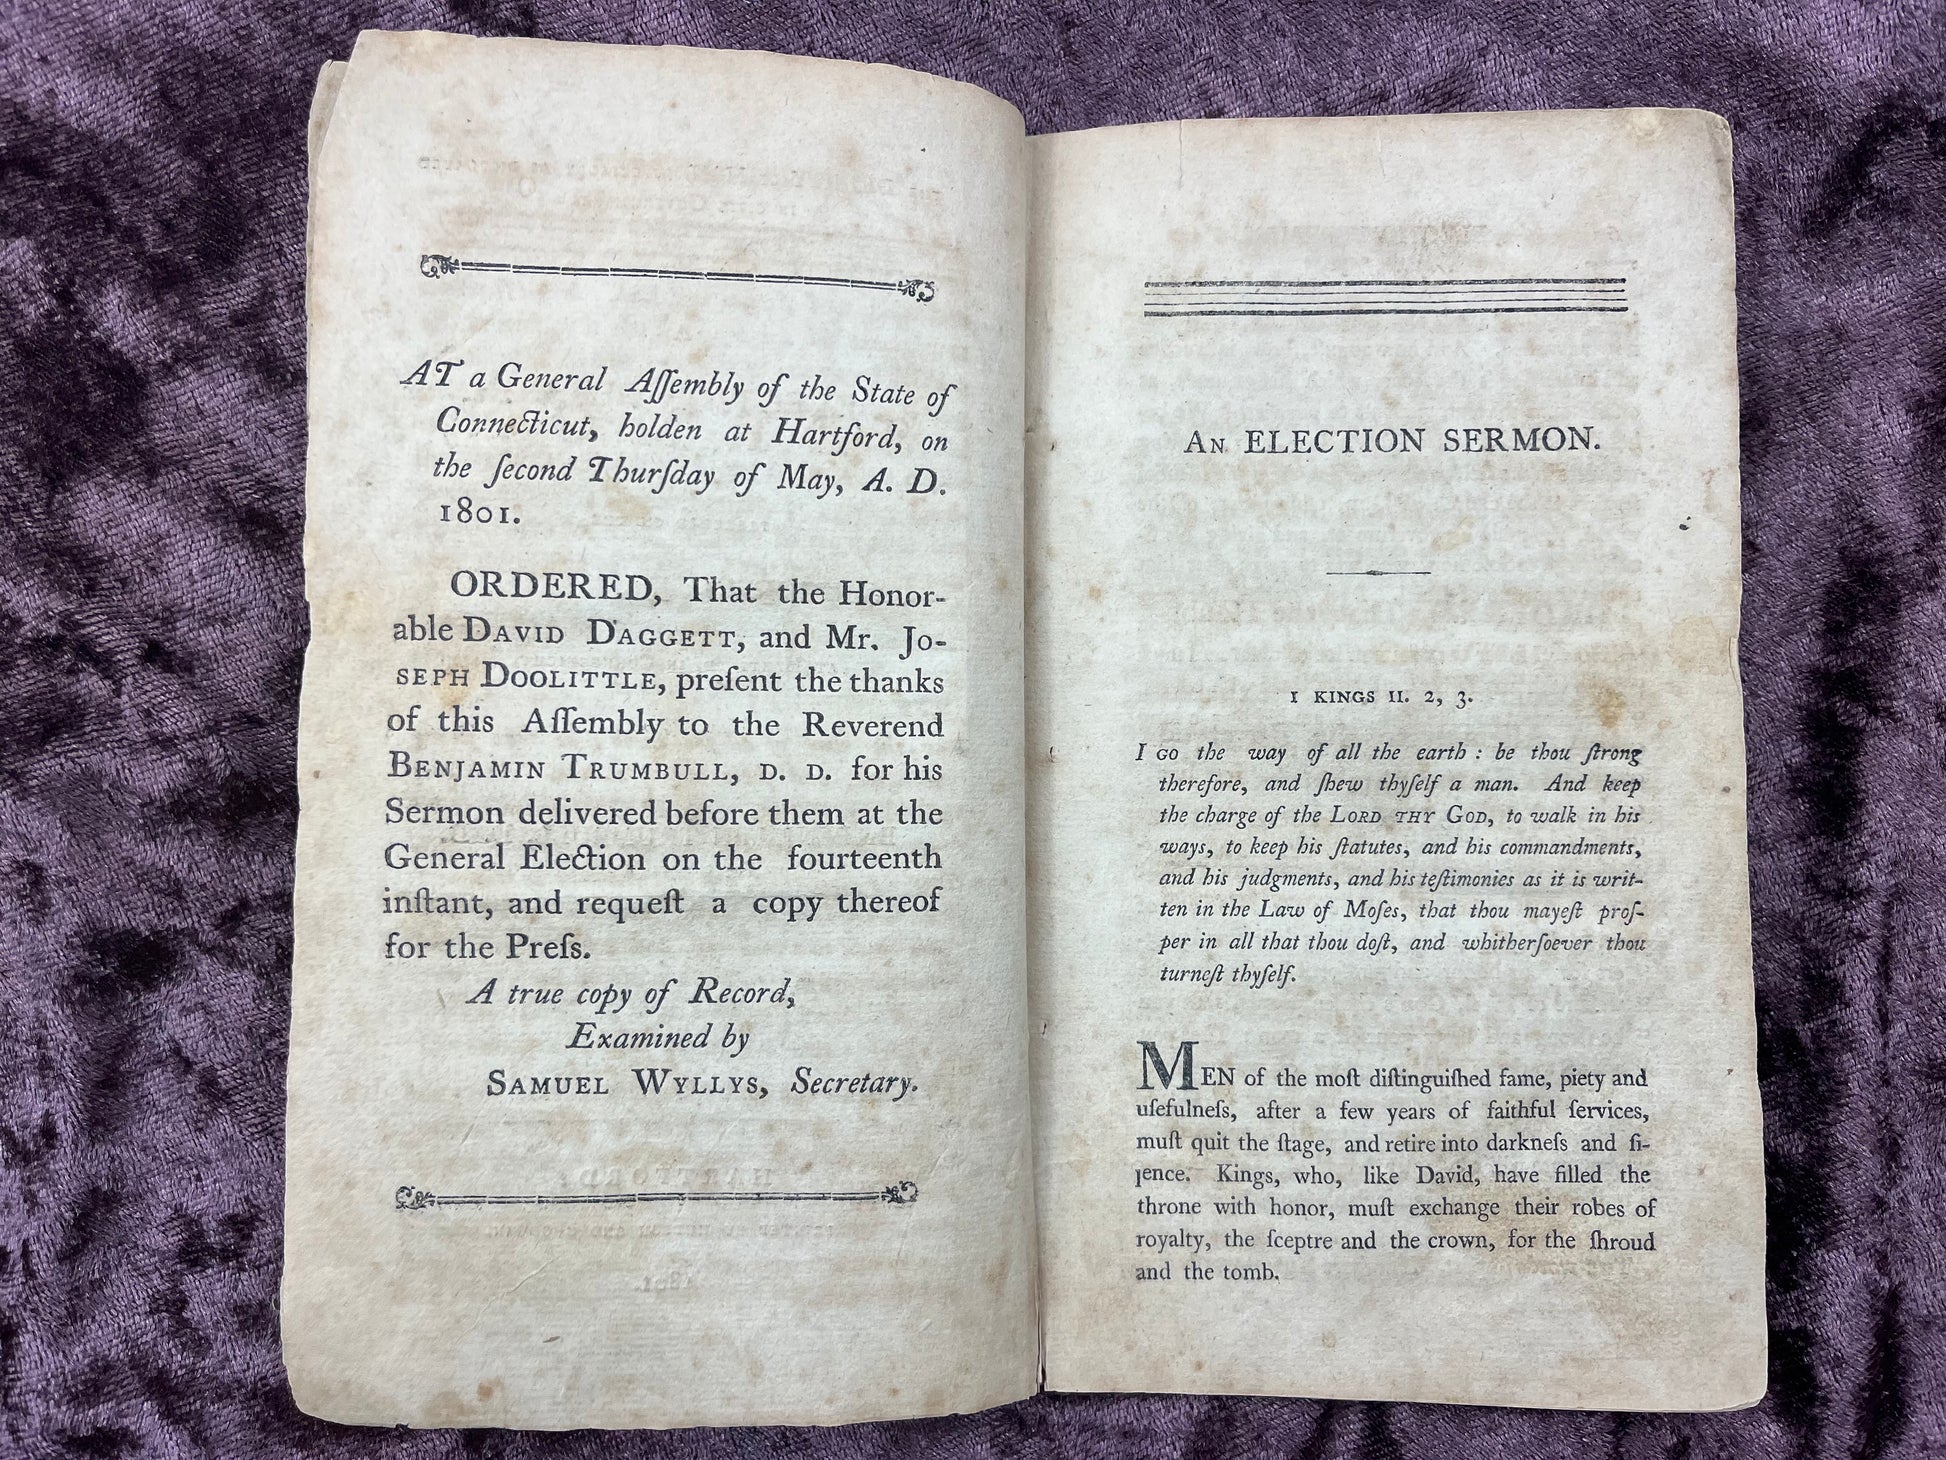 AT a General Aſſembly of the State of
Connecticut, holden at Hartford, on
the ſecond Thurſday of May, A. D.
1801.
ORDERED, That the Honor-
able DAVID DAGGETT, and Mr. JO-
SEPH DOOLITTLE, preſent the thanks
of this Aſſembly to the Reverend
BENJAMIN TRUMBULL, D. D. for his
Sermon delivered before them at the
General Election on the fourteenth
inſtant, and requeſt a copy thereof
for the Preſs.
A true copy of Record,
Examined by
SAMUEL WYLLYS, Secretary.
AN ELECTION SERMON.
1 KINGS II. 2, 3.
I GO the way of all the earth : be thou ſtrong
therefore, and ſhew thyſelf a man. And keep
the charge of the LORD THY GOD, to walk in his
ways, to keep his ſtatutes, and his commandments,
and his judgments, and his teſtimonies as it is writ-
ten in the Law of Moſes, that thou mayeſt proſ-
per in all that thou doſt, and whitherſoever thou
turneſt thyſelf.
MEN of the moſt diſtinguiſhed fame, piety and
uſefulneſs, after a few years of faithful ſervices,
muſt quit the ſtage, and retire into darkneſs and ſi-
lence. Kings, who, like David, have filled the
throne with honor, muſt exchange their robes of
royalty, the ſceptre and the crown, for the ſhroud
and the tomb.